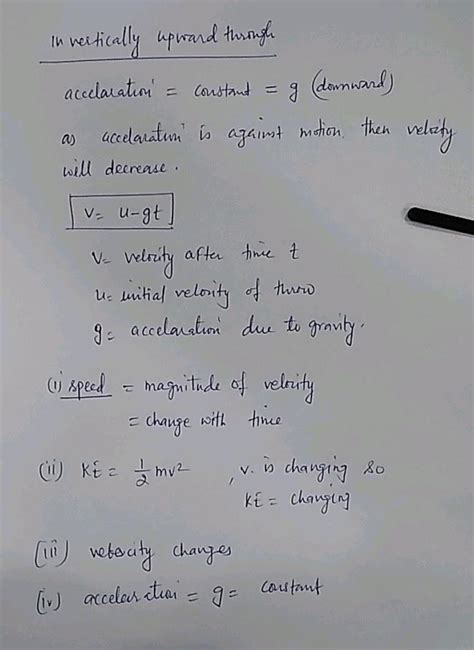 In vertically upward through
accelaration = constant = g (downward)
as accelaration is against motion. then velocity
will decrease.
v= u-gt
v= velocity after time t
u= initial velocity of throw
g= accelaration due to gravity.
(i) speed = magnitude of velocity
= change with time
(ii) KE = 1/2 mv², v. is changing so
KE = changing
(iii) velocity changes
(iv) accelaration = g = constant